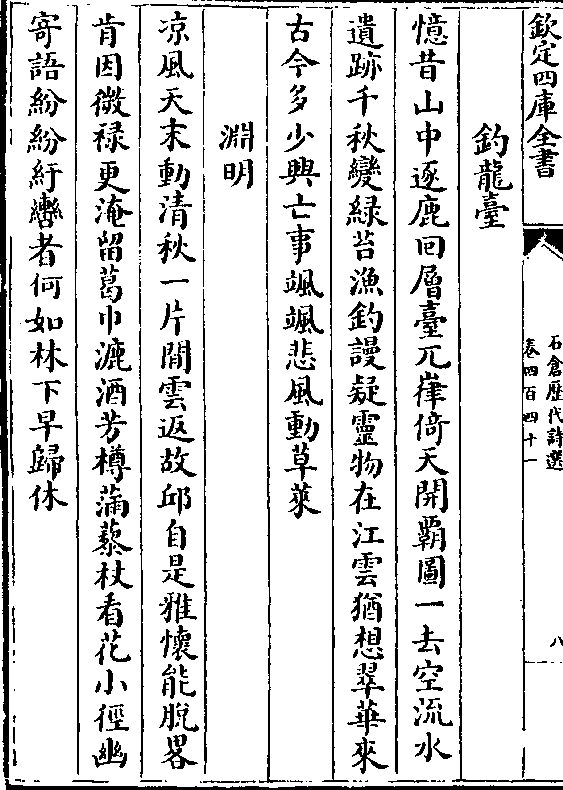 欽定四庫全書
石倉歷代詩選
卷四百四十一
八
釣龍臺
憶昔山中逐鹿回層臺兀嵂倚天開覇圖一去空流水
遺跡千秋變緑苔漁釣謾疑靈物在江雲猶想翠華來
古今多少興亡事颯颯悲風動草萊
淵明
凉風天末動清秋一片閒雲返故邱自是雅懷能脫畧
肯因微禄更淹留葛巾漉酒芳樽滿藜杖看花小徑幽
寄語紛紛紆轡者何如林下早歸休